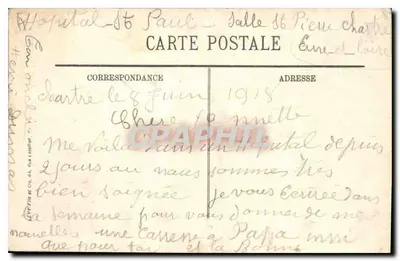 Hopital St Paul Salle St Pierre Chartre
Eure et Loire
CARTE POSTALE
CORRESPONDANCE
ADRESSE
Chartre le 8 Juin 1918
Chere
CPARAMA
Me voila dans un Hopital depuis
2 jours au nous sommes tres
bien soignée je vous Ecrirée dans
la semaine pour vous donner de mes
nouvelles une Caresse a Papa
que pour toi et la Bonne